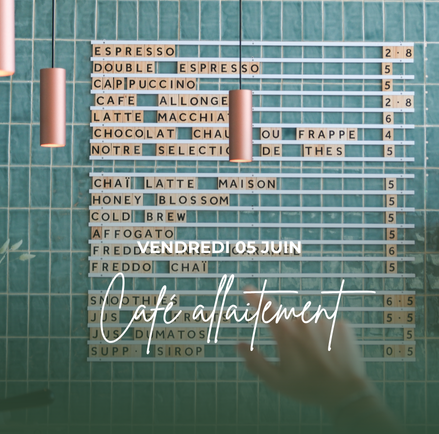 ESPRESSO 2·8
DOUBLE ESPRESSO 5
CAPPUCCINO 5
CAFE ALLONGE 2·8
LATTE MACCHIA 6
CHOCOLAT CHAU OU FRAPPE 4
NOTRE SELECTIO DE THES 5
CHAÏ LATTE MAISON 5
HONEY BLOSSOM 5
COLD BREW 5
AFFOGATO 5
VENDREDI 05 JUIN
FREDDO 6
FREDDO CHAÏ 5
SMOOTHIES 6·5
Café allaitement
5·5
JUS DUMATOS 5
SUPP· SIROP 0·5